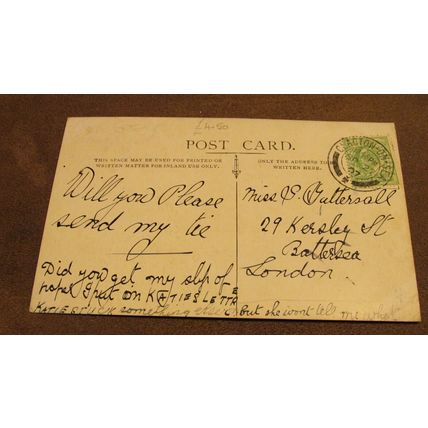 £4-50
POST CARD.
THIS SPACE MAY BE USED FOR PRINTED OR
WRITTEN MATTER FOR INLAND USE ONLY.
ONLY THE ADDRESS TO BE
WRITTEN HERE.
CLACTON-ON-SEA
07
Will you Please
send my tie
Did you get my slip of
paper I put on KATIES LETTR
KATIE STUCK something else but she wont tell me what
Miss Tattersall
29 Kersley St
Battersea
London.